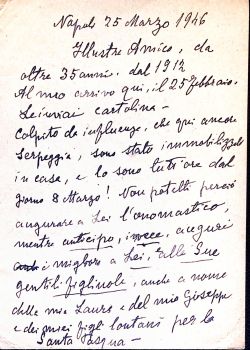 Napoli 25 Marzo 1946
Illustre Amico, da
oltre 35 anni. dal 1912
Al mio arrivo qui, il 25 febbraio.
Le inviai cartolina –
Colpito da influenza, che qui ancora
serpeggia, sono stato immobilizzato
in casa, e lo sono tutt'ora dal
giorno 8 Marzo! Non potetti perciò
augurare a Lei l'onomastico,
mentre anticipo, invece, auguri
i migliori a Lei, alle Sue
gentili figliuole, anche a nome
della mia Laura e del mio Giuseppe
e dei miei figli lontani per la
Santa Pasqua –